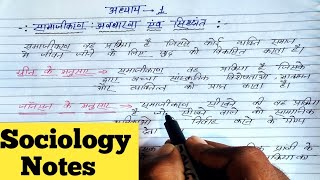 अध्याय → 1
समाजीकरण : अवधारणा एवं सिद्धांत
समाजीकरण वह प्रक्रिया है जिससे कोई व्यक्ति समाज
में जीवन जीने के लिए खुद को विकसित करता है।
ग्रीन के अनुसार → समाजीकरण वह प्रक्रिया है जिसके
द्वारा बच्चा सांस्कृतिक विशेषताओं,
और व्यक्तित्व को प्राप्त करता है।
जॉनसन के अनुसार → समाजीकरण सीखने की वह प्रक्रिया
है जो सीखने वाले को सामाजिक
निर्वाह करने के योग्य
देता
Sociology
Notes